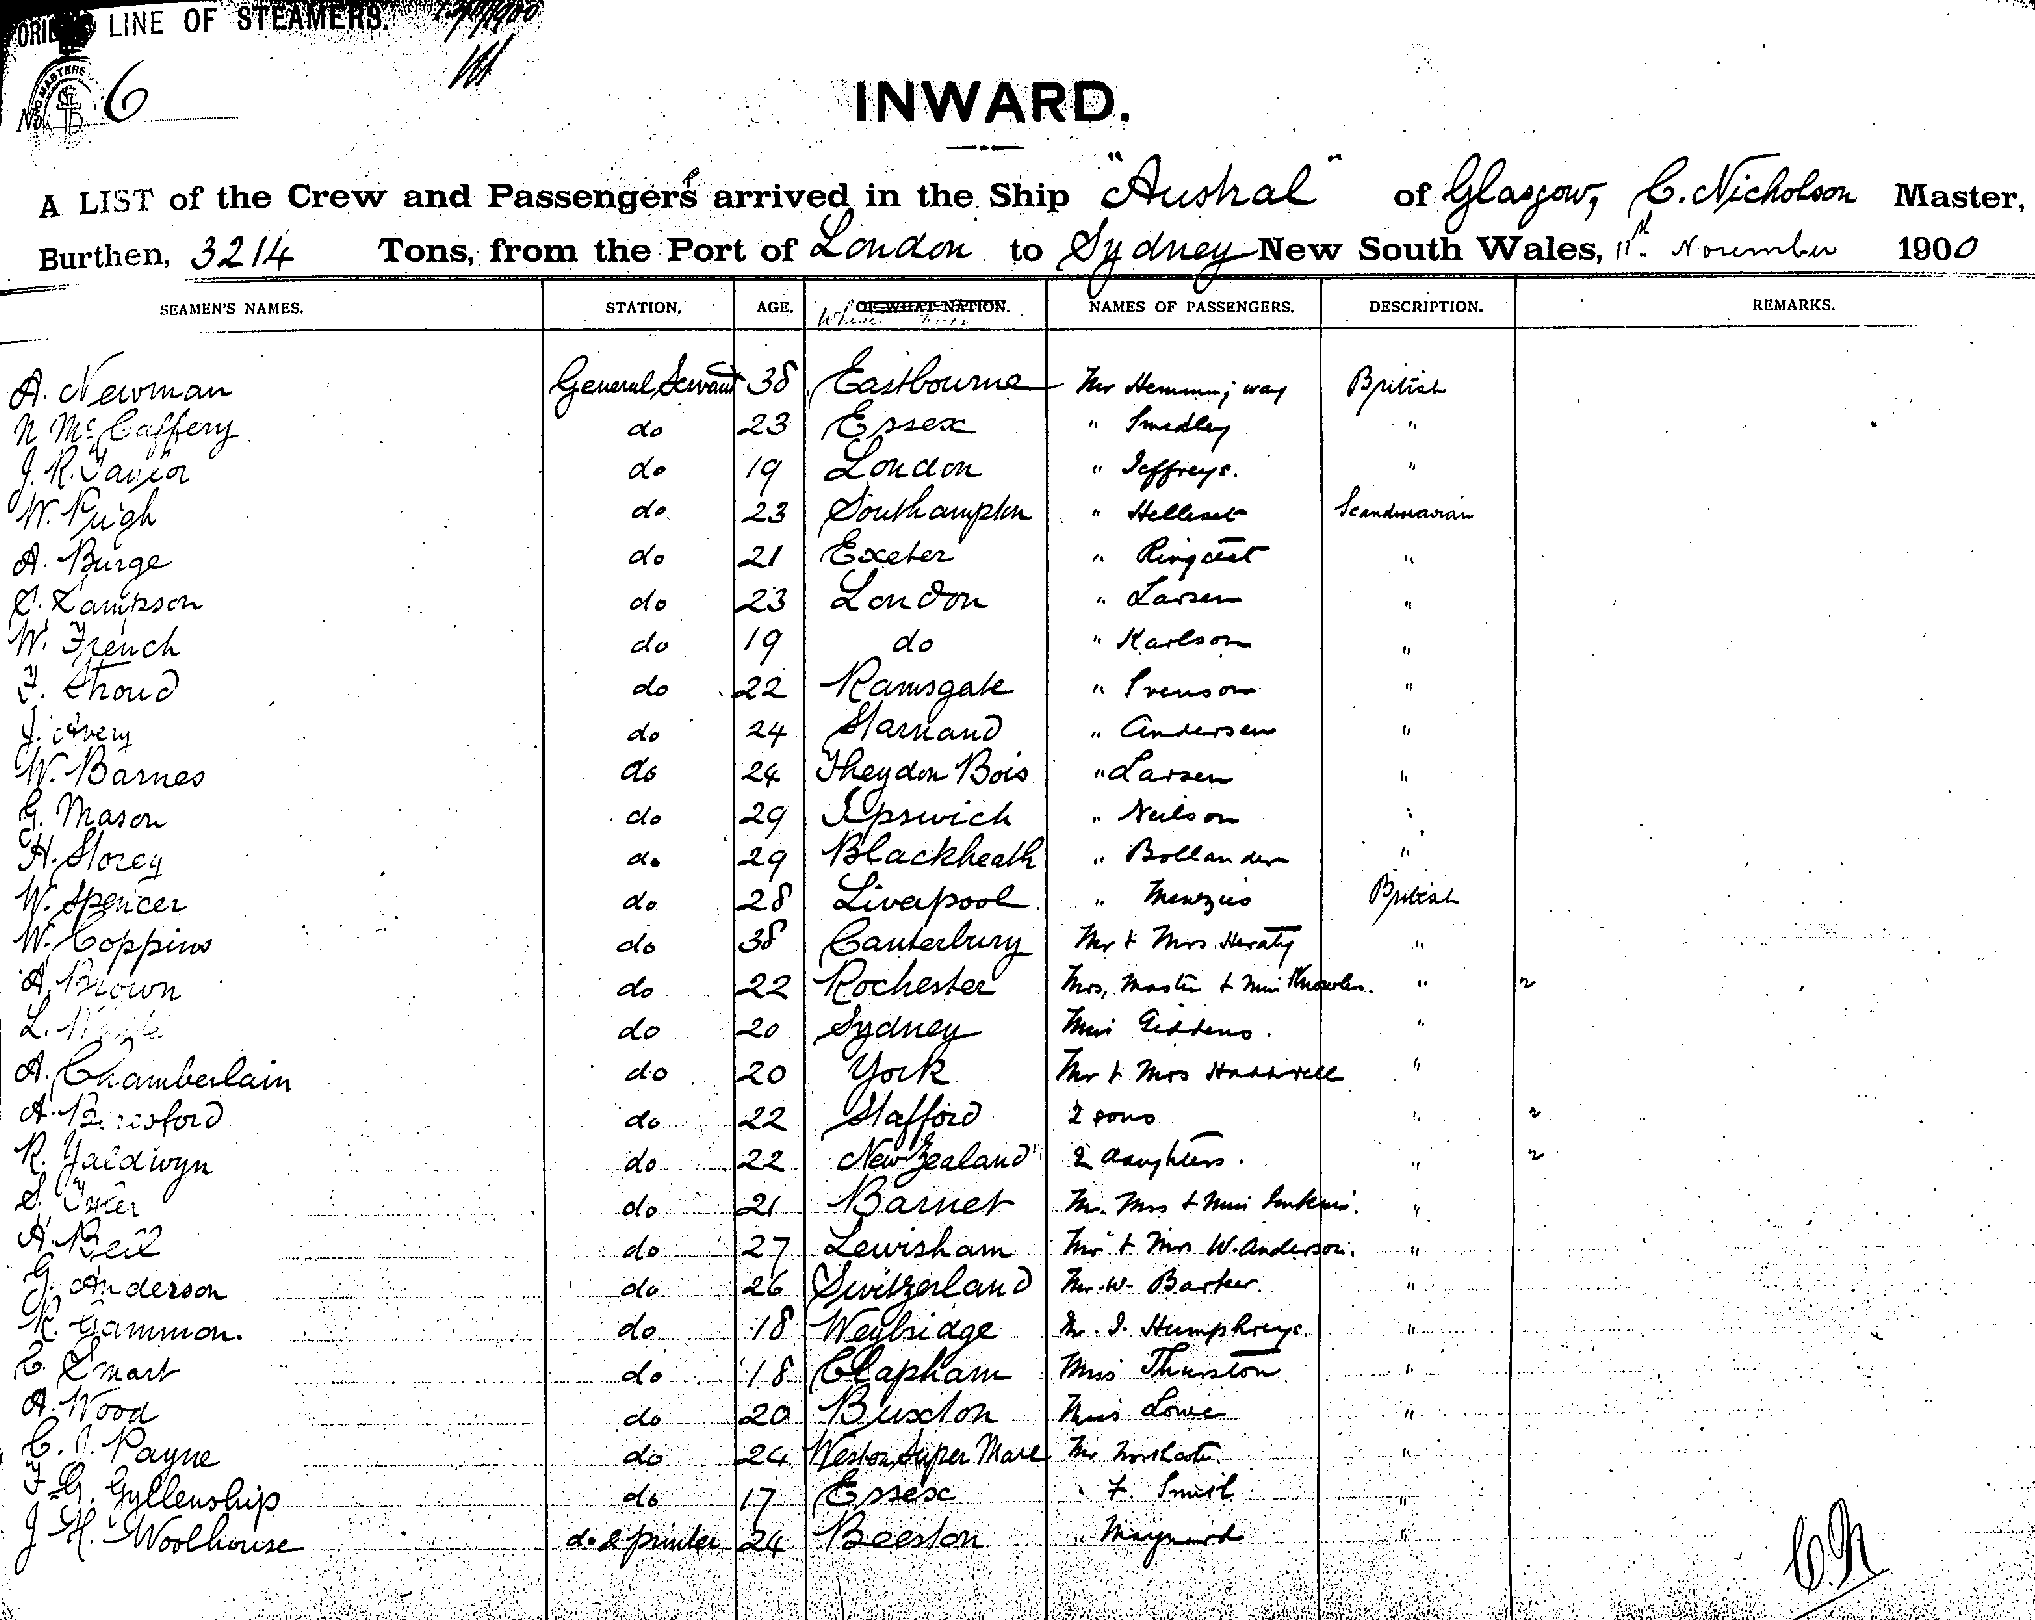 LINE OF STEAMERS.
No. 6
INWARD.
A LIST of the Crew and Passengers arrived in the Ship "Austral" of Glasgow, C. Nicholson Master,
Burthen, 3214 Tons, from the Port of London to Sydney New South Wales, 11th November 1900
SEAMEN'S NAMES. STATION. AGE. OF WHAT NATION. NAMES OF PASSENGERS. DESCRIPTION. REMARKS.
A. Newman General Servant 38 Eastbourne Mr Hemmingway British
N McCaffery do 23 Essex " Smedley "
J. R. Taylor do 19 London " Jeffreys. "
W. Pugh do 23 Southampton " Scandinavian
A. Burge do 21 Exeter " "
Lampson do 23 London " Larsen "
W. French do 19 do " Karlson "
F. Stroud do 22 Ramsgate " Svenson "
J. Avery do 24 " Andersen "
W. Barnes do 24 Theydon Bois " Larsen "
G. Mason do 29 Ipswich " Neilson "
H. Storey do 29 Blackheath " Bollander "
W. Spencer do 28 Liverpool " Menzies British
W. Coppins do 38 Canterbury Mr & Mrs Heraty "
A. Brown do 22 Rochester Mrs, Master & Miss Knowles. " 2
L. do 20 Sydney Miss Giddens. "
A. Chamberlain do 20 York Mr & Mrs "
A. Beresford do 22 Stafford 2 sons " 2
R. Yaldwyn do 22 New Zealand 2 daughters. " 2
S. do 21 Barnet Mr. Mrs & Miss Jenkins. "
A. Beil do 27 Lewisham Mr & Mrs W. Anderson. "
G. Anderson do 26 Switzerland Mr. W. Barker. "
R. Gammon. do 18 Weybridge Mr. J. Humphreys. "
C. Smart do 18 Clapham Miss Thurston "
A. Wood do 20 Buxton Miss Lowe "
C. J. Payne do 24 Weston Super Mare Mr Northcote. "
F. G. Gyllenship do 17 Essex " F. Smith "
J. H. Woolhouse do & printer 24 Beeston " Maynard "
C.N